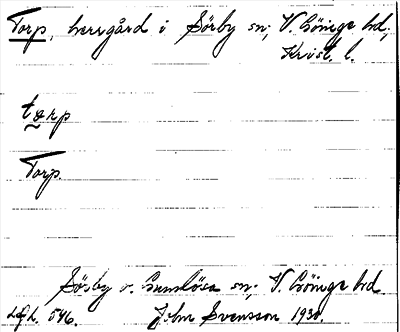 Torp, herrgård i Sörby sn; V. Göinge hd,
Krist. l.
tørp
Torp.
Sösby o. Gumlösa sn; V. Göinge hd.
546. John Svensson 1930.